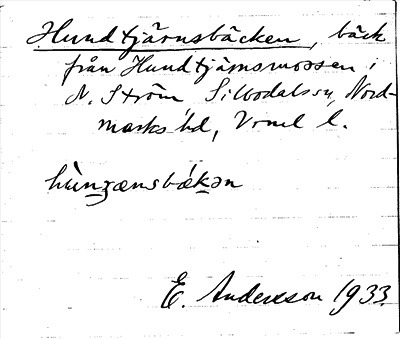 Hundtjärnsbäcken, bäck
från Hundtjärnsmossen i
N. Ström, Silbodals sn, Nord-
marks hd, Vrml l.
hùnʒænsbǽkən
E. Andersson 1933.